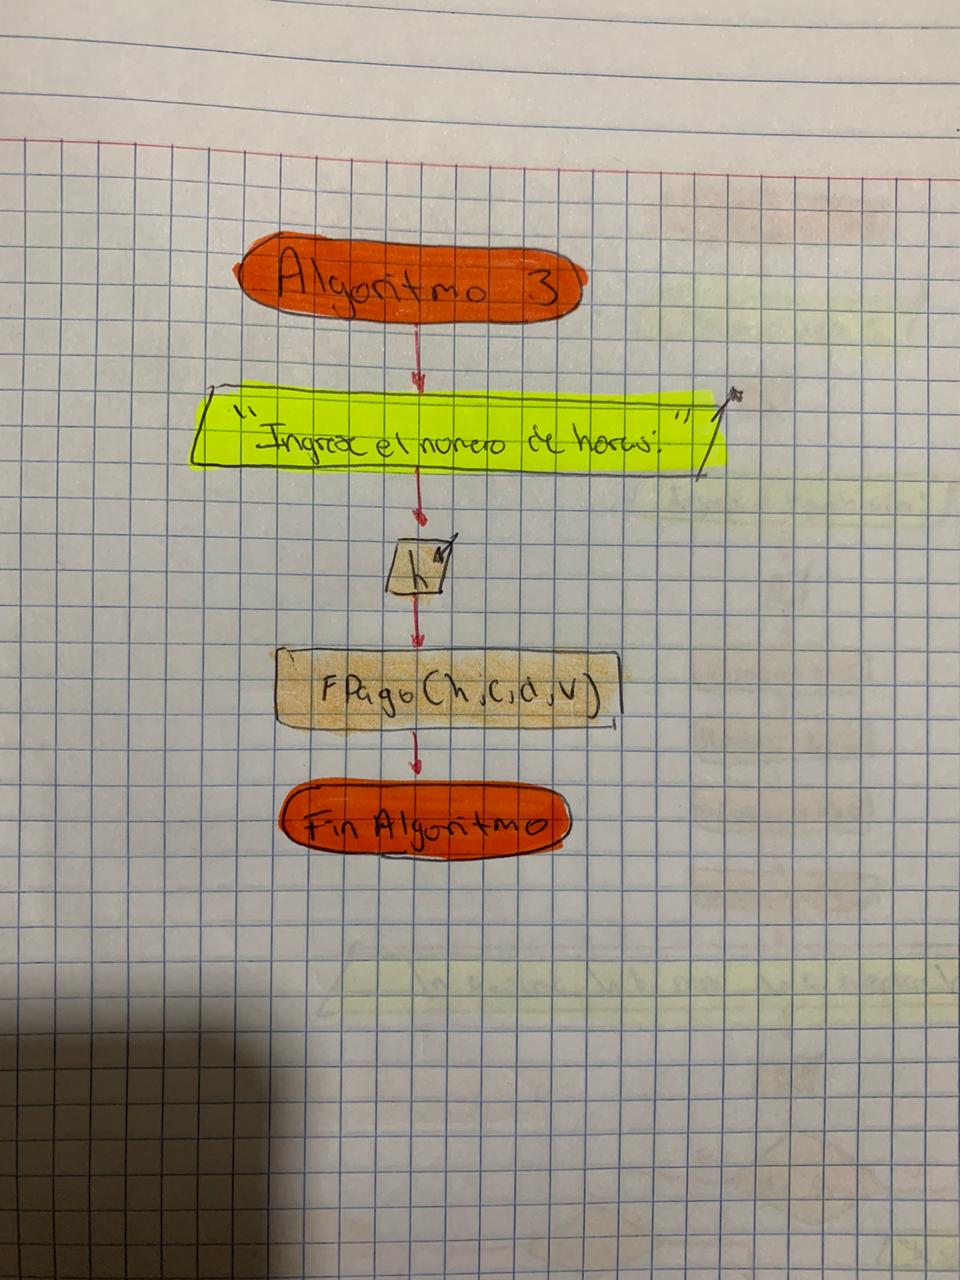 Algoritmo 3
"Ingrese el numero de horas:"
h
FPago(h,c,d,v)
Fin Algoritmo